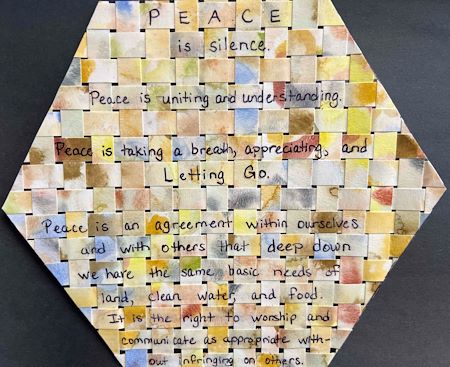 PEACE
is silence.
Peace is uniting and understanding.
Peace is taking a breath, appreciating, and
Letting Go.
Peace is an agreement within ourselves
and with others that deep down
we have the same basic needs of
land, clean water, and food.
It is the right to worship and
communicate as appropriate with-
out infringing on others.